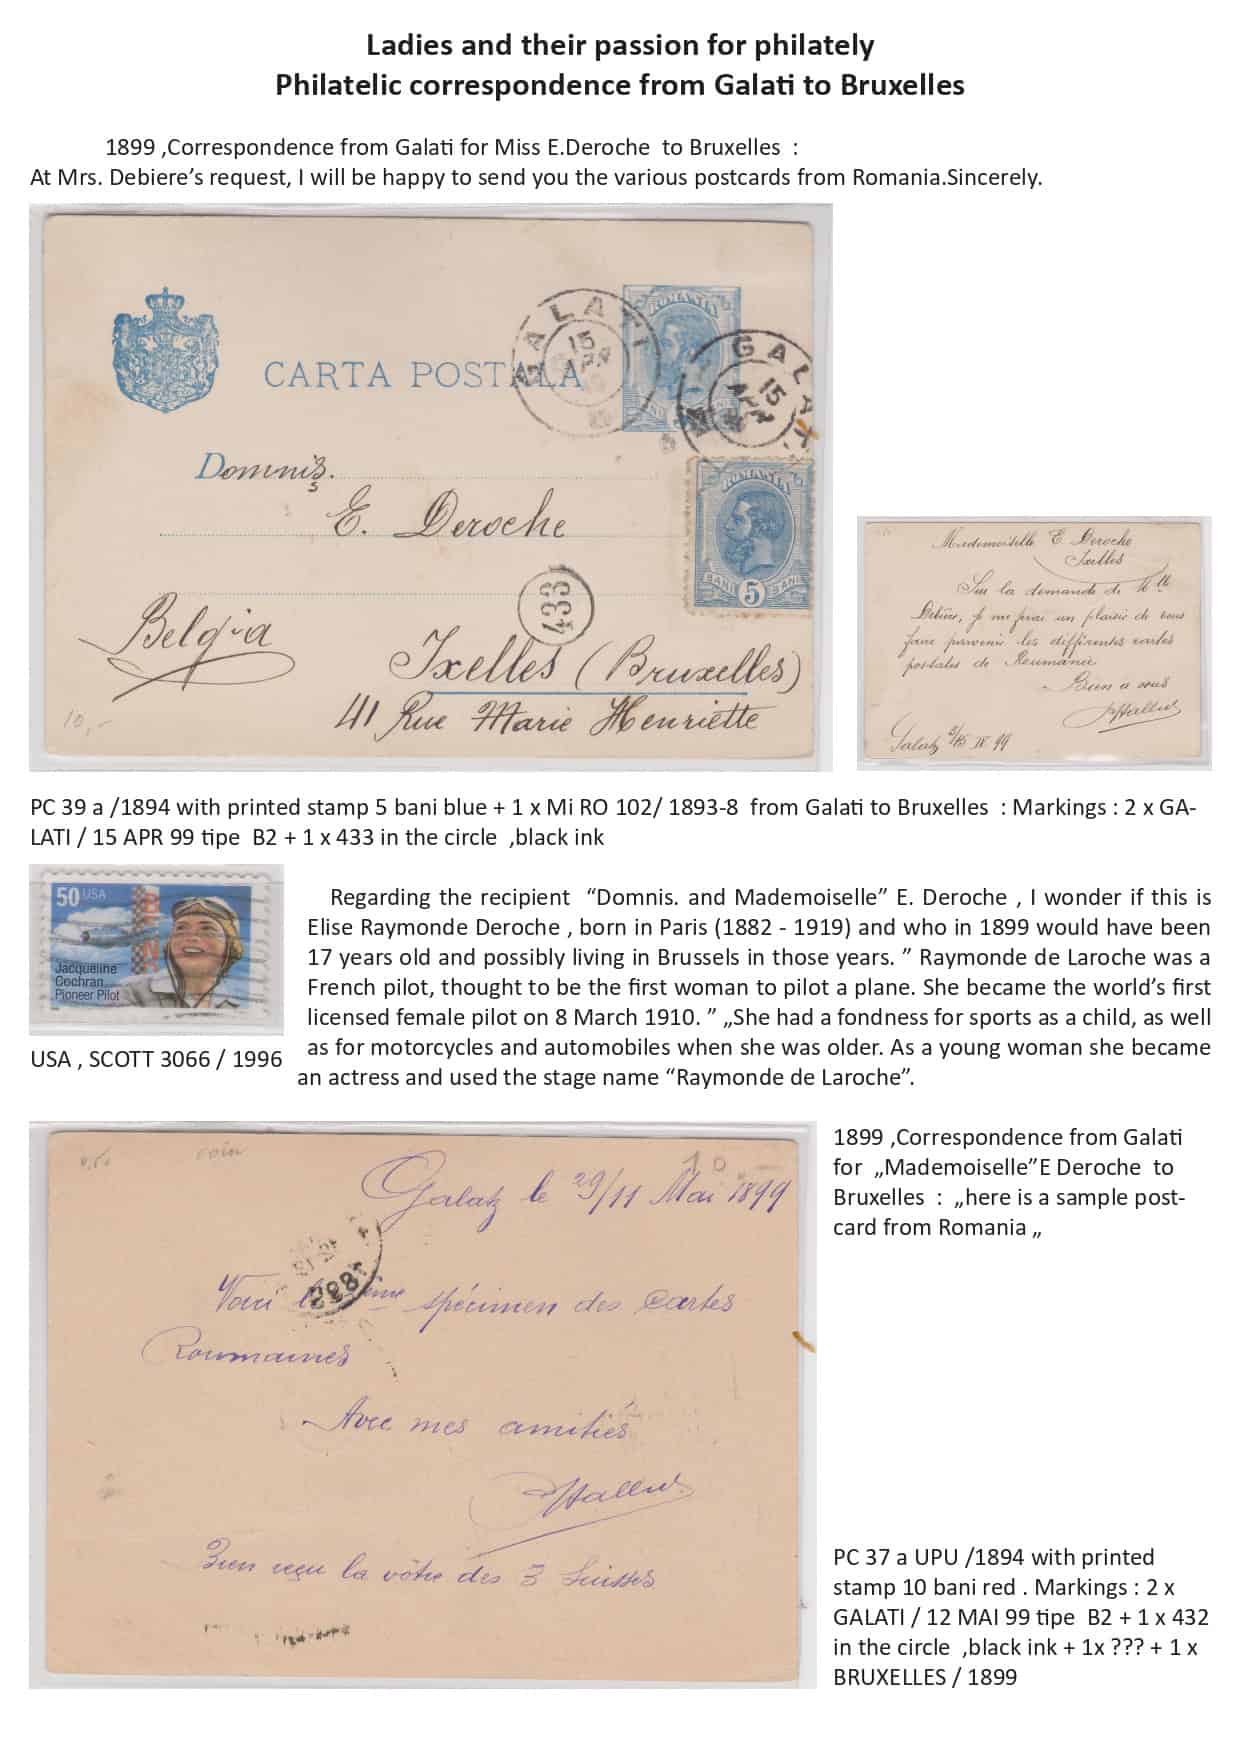 Ladies and their passion for philately
Philatelic correspondence from Galati to Bruxelles
1899 ,Correspondence from Galati for Miss E.Deroche to Bruxelles :
At Mrs. Debiere's request, I will be happy to send you the various postcards from Romania.Sincerely.
ROMANIA
GALATI
15 APR
CARTA POSTALA
GALATI
15 APR 99
Domniș.
E. Deroche
ROMANIA
BANI 5 BANI
433
Belgia
Ixelles (Bruxelles)
41 Rue Marie Henriette
10,-
Mademoiselle E Deroche
Ixelles
Sur la demande de Mlle
je me ferai un plaisir de vous
faire parvenir les différentes cartes
postales de Roumanie
Bien a vous
Galatz 3/15 IV 99
PC 39 a /1894 with printed stamp 5 bani blue + 1 x Mi RO 102/ 1893-8 from Galati to Bruxelles : Markings : 2 x GA-
LATI / 15 APR 99 tipe B2 + 1 x 433 in the circle ,black ink
50 USA
Jacqueline
Cochran
Pioneer Pilot
USA , SCOTT 3066 / 1996
Regarding the recipient “Domnis. and Mademoiselle” E. Deroche , I wonder if this is
Elise Raymonde Deroche , born in Paris (1882 - 1919) and who in 1899 would have been
17 years old and possibly living in Brussels in those years. ” Raymonde de Laroche was a
French pilot, thought to be the first woman to pilot a plane. She became the world’s first
licensed female pilot on 8 March 1910. ” „She had a fondness for sports as a child, as well
as for motorcycles and automobiles when she was older. As a young woman she became
an actress and used the stage name “Raymonde de Laroche”.
1899 ,Correspondence from Galati
for „Mademoiselle”E Deroche to
Bruxelles : „here is a sample post-
card from Romania „
coin
10
Galatz le 29/11 Mai 1899
Voici le spécimen des cartes
Roumaines
Avec mes amitiés
Bien reçu la vôtre des 3 Suisses
PC 37 a UPU /1894 with printed
stamp 10 bani red . Markings : 2 x
GALATI / 12 MAI 99 tipe B2 + 1 x 432
in the circle ,black ink + 1x ??? + 1 x
BRUXELLES / 1899